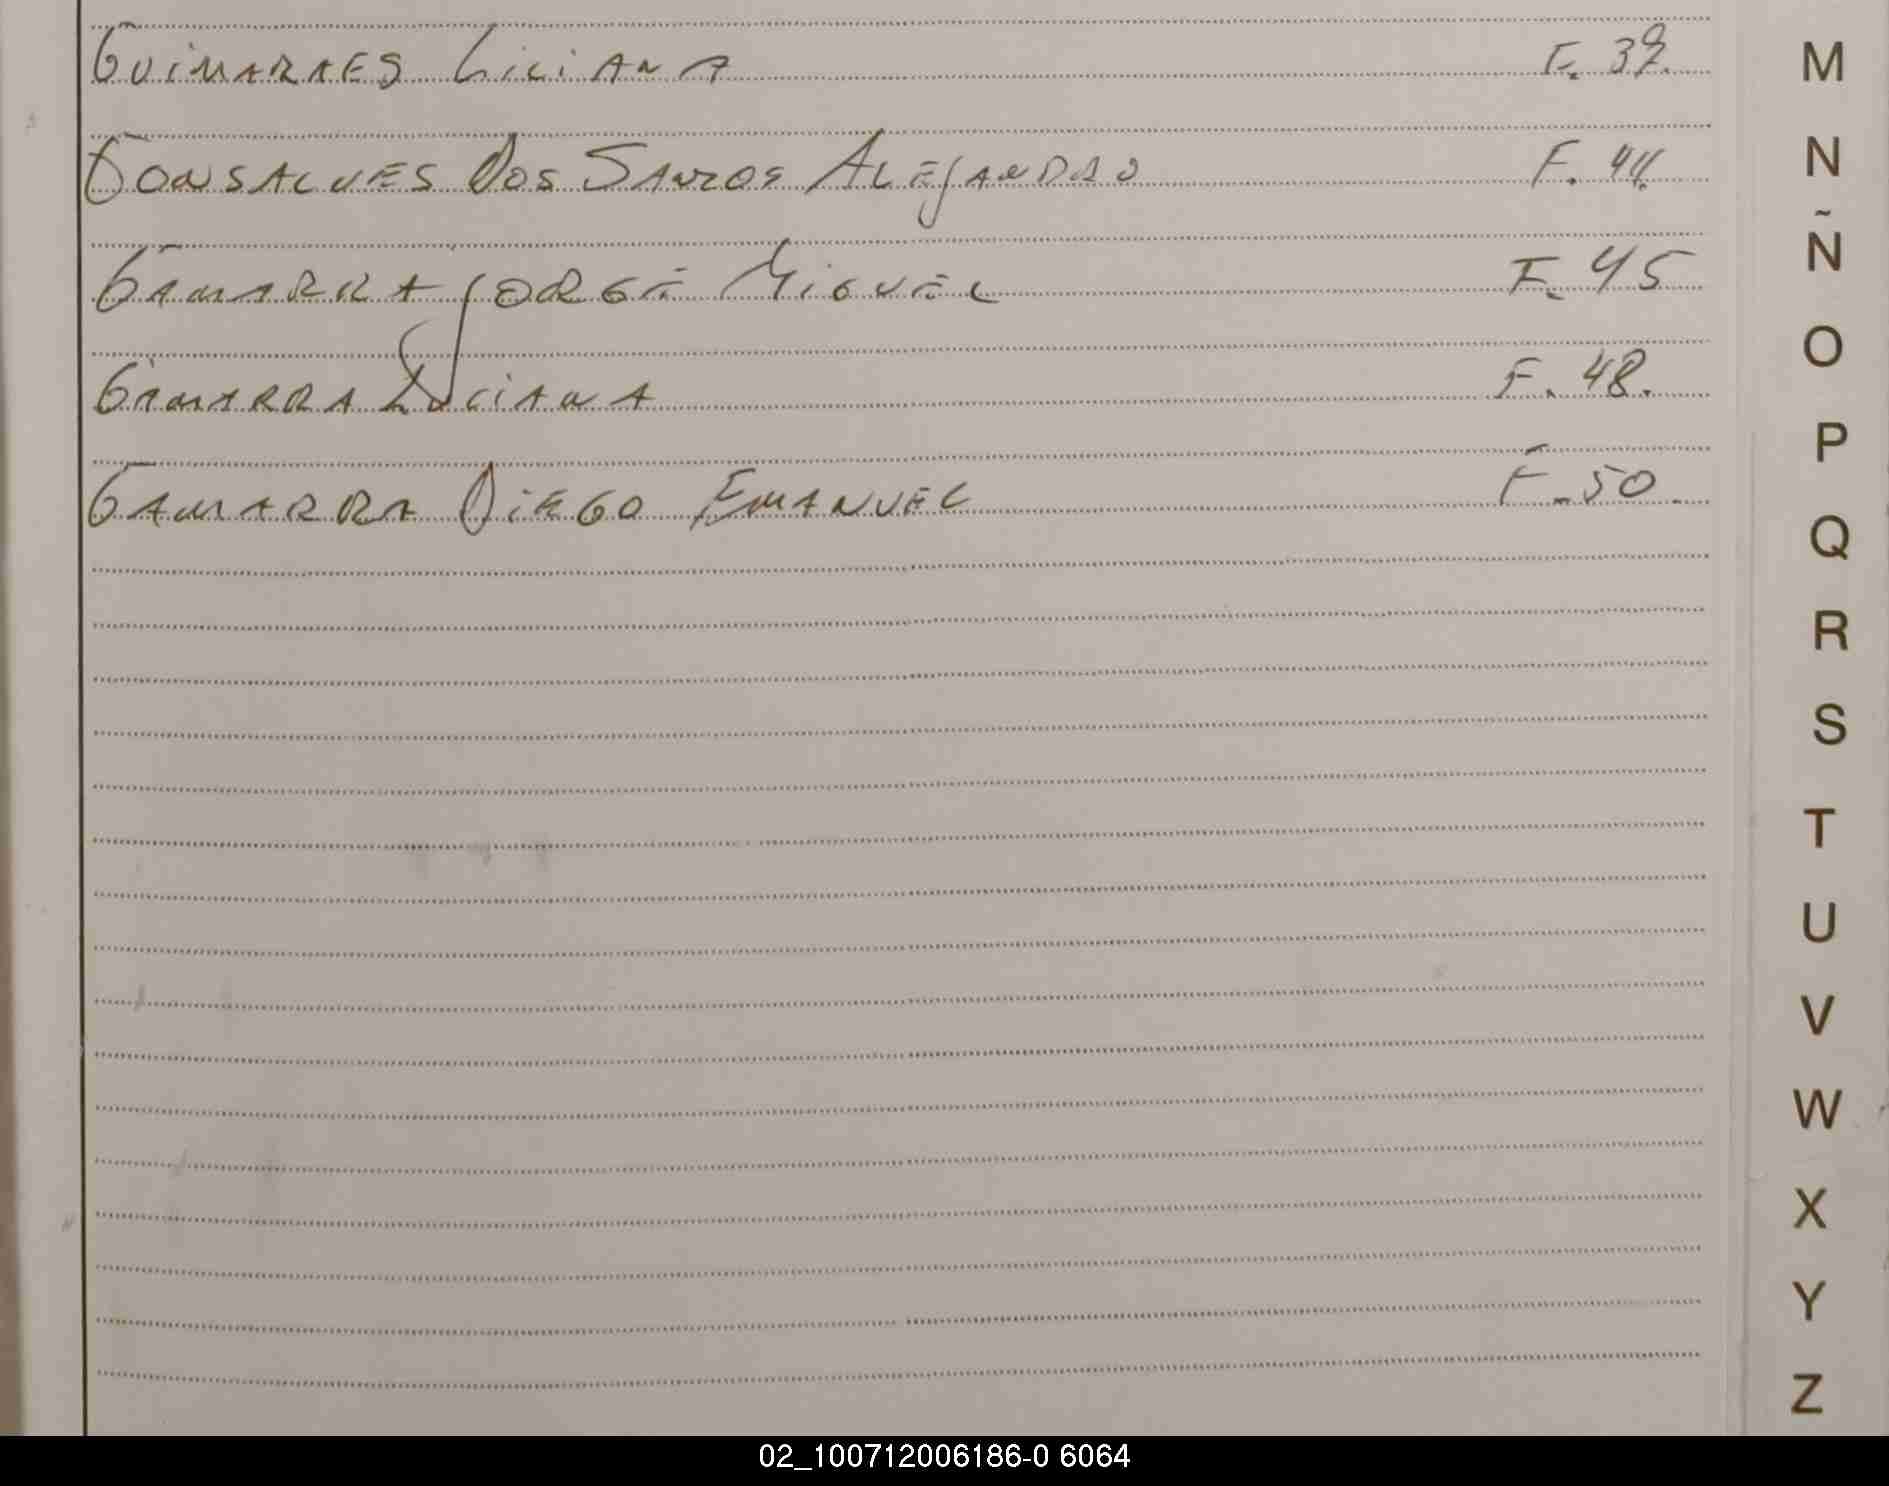 GUIMARAES LILIANA F. 39.
GONSALVES DOS SANTOS ALEJANDRO F. 44.
GAMARRA JORGE MIGUEL F. 45
GAMARRA LUCIANA F. 48.
GAMARRA DIEGO EMANUEL F. 50.
M
N
Ñ
O
P
Q
R
S
T
U
V
W
X
Y
Z
02_100712006186-0 6064